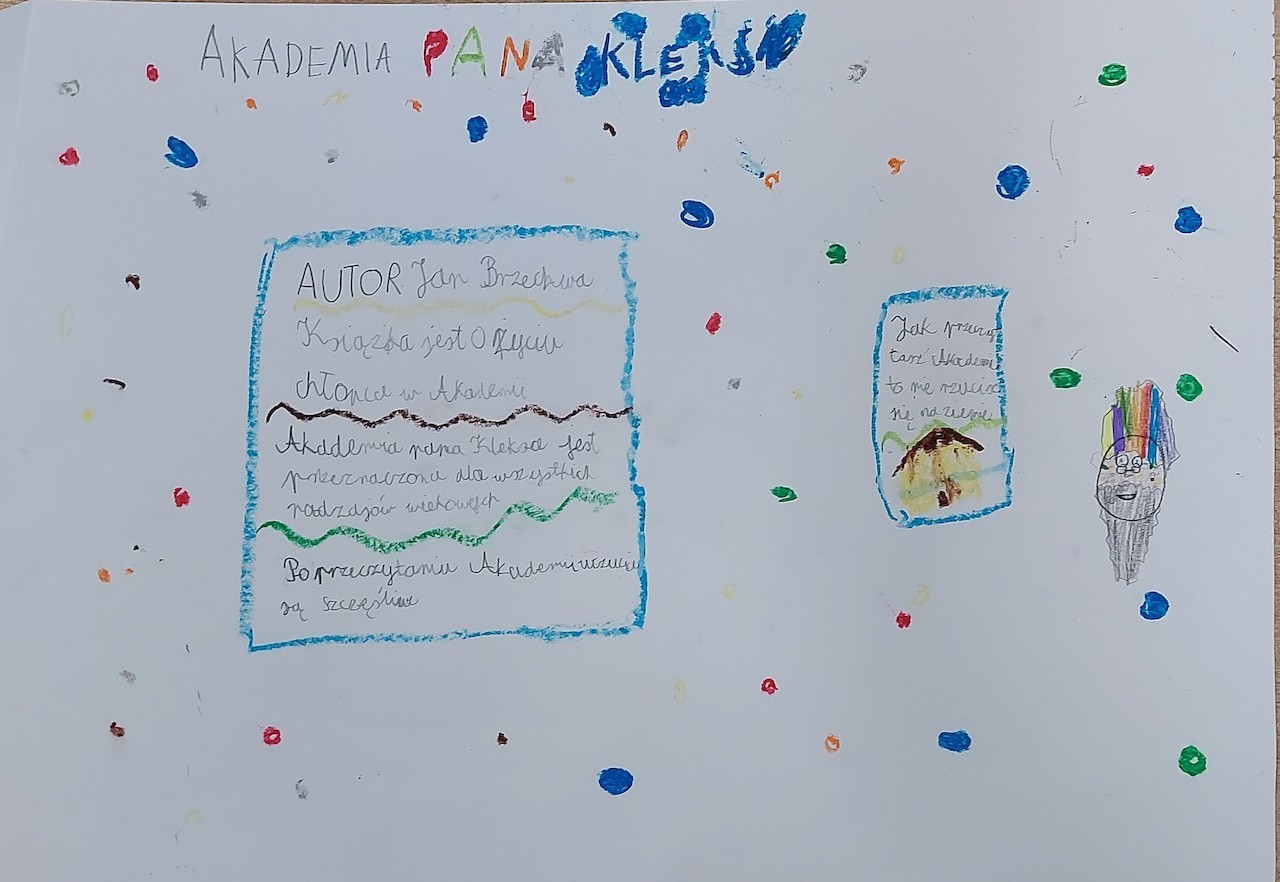 AKADEMIA PANA KLEKSA
AUTOR Jan Brzechwa
Książka jest O życiu
chłopca w Akademii
Akademia pana Kleksa jest
przeznaczona dla wszystkich
rodzajów wiekowych
Po przeczytaniu Akademii uczucia
są szczęśliwe
Jak przeczy
tasz Akademi
to nie rzucisz
się na ziemię